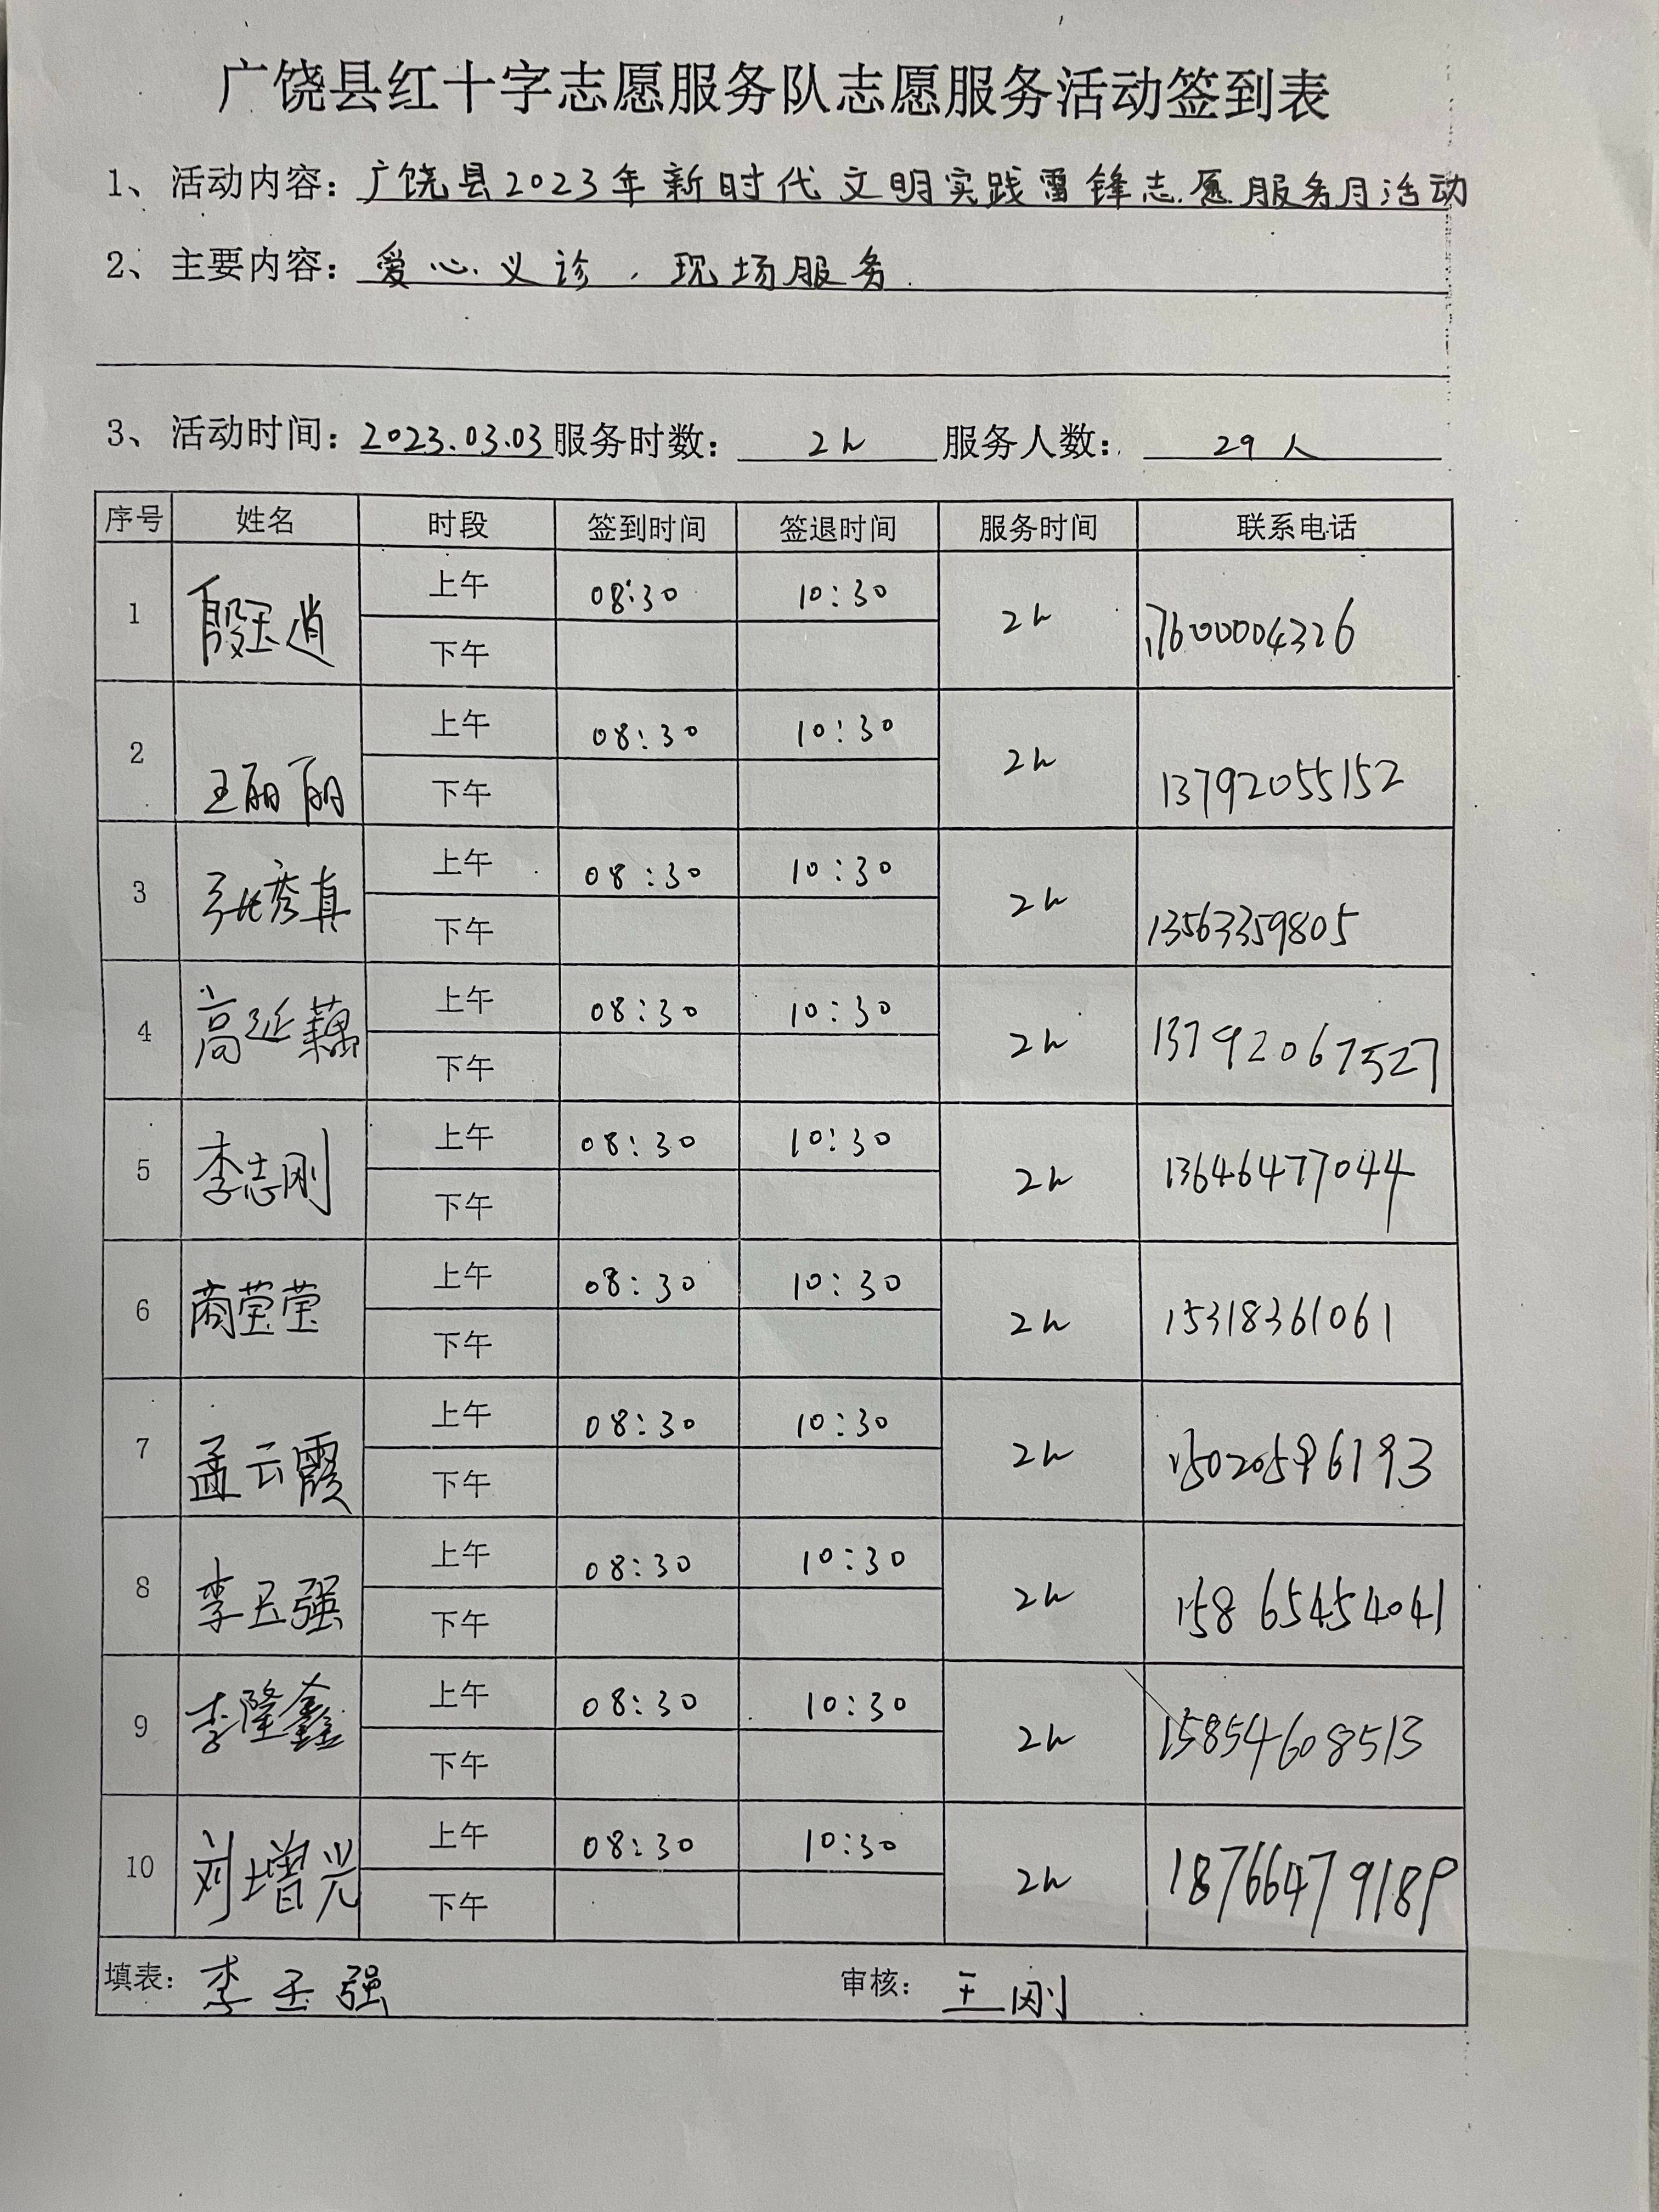 广饶县红十字志愿服务队志愿服务活动签到表
1、活动内容：广饶县2023年新时代文明实践雷锋志愿服务月活动
2、主要内容：爱心义诊，现场服务.
3、活动时间：2023.03.03 服务时数：2h 服务人数：29人
序号 姓名 时段 签到时间 签退时间 服务时间 联系电话
1 殷玉逍 上午 08:30 10:30 2h 17600004326
下午
2 王丽丽 上午 08:30 10:30 2h 13792055152
下午
3 张秀真 上午 08:30 10:30 2h 13563359805
下午
4 高延藕 上午 08:30 10:30 2h 13792067527
下午
5 李志刚 上午 08:30 10:30 2h 13646477044
下午
6 商莹莹 上午 08:30 10:30 2h 15318361061
下午
7 孟云霞 上午 08:30 10:30 2h 15020596193
下午
8 李玉强 上午 08:30 10:30 2h 15865454041
下午
9 李隆鑫 上午 08:30 10:30 2h 15854608513
下午
10 刘增光 上午 08:30 10:30 2h 18766479189
下午
填表：李玉强 审核：王刚